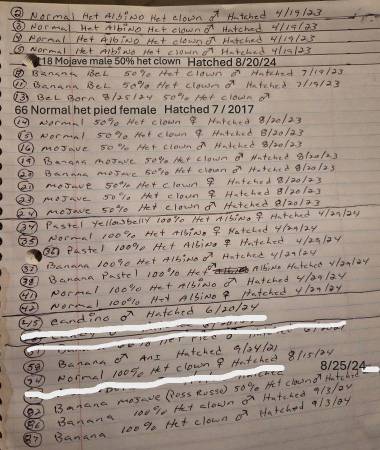 ② Normal Het Albino Het clown ♂ Hatched 4/19/23
③ Normal Het Albino Het clown ♂ Hatched 4/19/23
Normal Het Albino Het clown ♂ Hatched 4/19/23
⑤ Normal Het Albino Het clown ♂ Hatched 4/19/23
118 Mojave male 50% het clown Hatched 8/20/24
Banana BEL 50% Het clown ♂ Hatched 7/19/23
⑪ Banana BEL 50% Het clown ♂ Hatched 7/19/23
⑬ Bel Born 8/25/24 50% Het clown ♂
66 Normal het pied female Hatched 7 / 2017
⑭ Normal 50% Het clown ♀ Hatched 8/20/23
⑮ Normal 50% Het clown ♀ Hatched 8/20/23
⑯ mojave 50% Het clown ♂ Hatched 8/20/23
⑲ Banana mojave 50% Het clown ♂ Hatched 8/20/23
Banana mojave 50% Het clown ♂ Hatched 8/20/23
㉑ mojave 50% Het clown ♀ Hatched 8/20/23
㉓ mojave 50% Het clown ♀ Hatched 8/20/23
㉔ mojave 50% Het clown ♂ Hatched 8/20/23
㉞ Pastel Yellowbelly 100% Het Albino ♀ Hatched 4/29/24
㉟ Normal 100% Het Albino ♀ Hatched 4/29/24
㊱ Pastel 100% Het Albino ♀ Hatched 4/29/24
㊲ Banana 100% Het Albino ♂ Hatched 4/29/24
Banana Pastel 100% Het Albino Hatched 4/29/24
㊶ Normal 100% Het Albino ♂ Hatched 4/29/24
㊷ Normal 100% Het Albino ♀ Hatched 4/29/24
㊺ Candino ♂ Hatched 6/20/24
Banana ♂ Hatched 9/24/21
Normal 100% Het clown ♀ Hatched 8/15/24
8/25/24
Banana mojave (Ross Russo) 50% Het clown ♂ Hatched
Banana 100% Het clown ♂ Hatched 9/3/24
87 Banana 100% Het clown ♂ Hatched 9/3/24